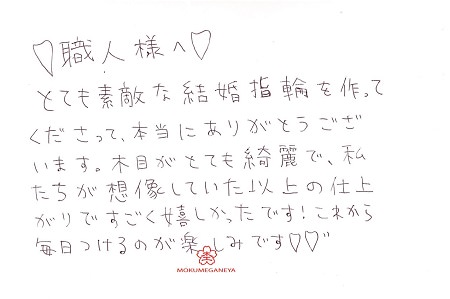 ♡職人様へ♡
とても素敵な結婚指輪を作って
くださって、本当にありがとうござ
います。木目がとても綺麗で、私
たちが想像していた以上の仕上
がりですごく嬉しかったです!これから
毎日つけるのが楽しみです♡♡"
MOKUMEGANEYA